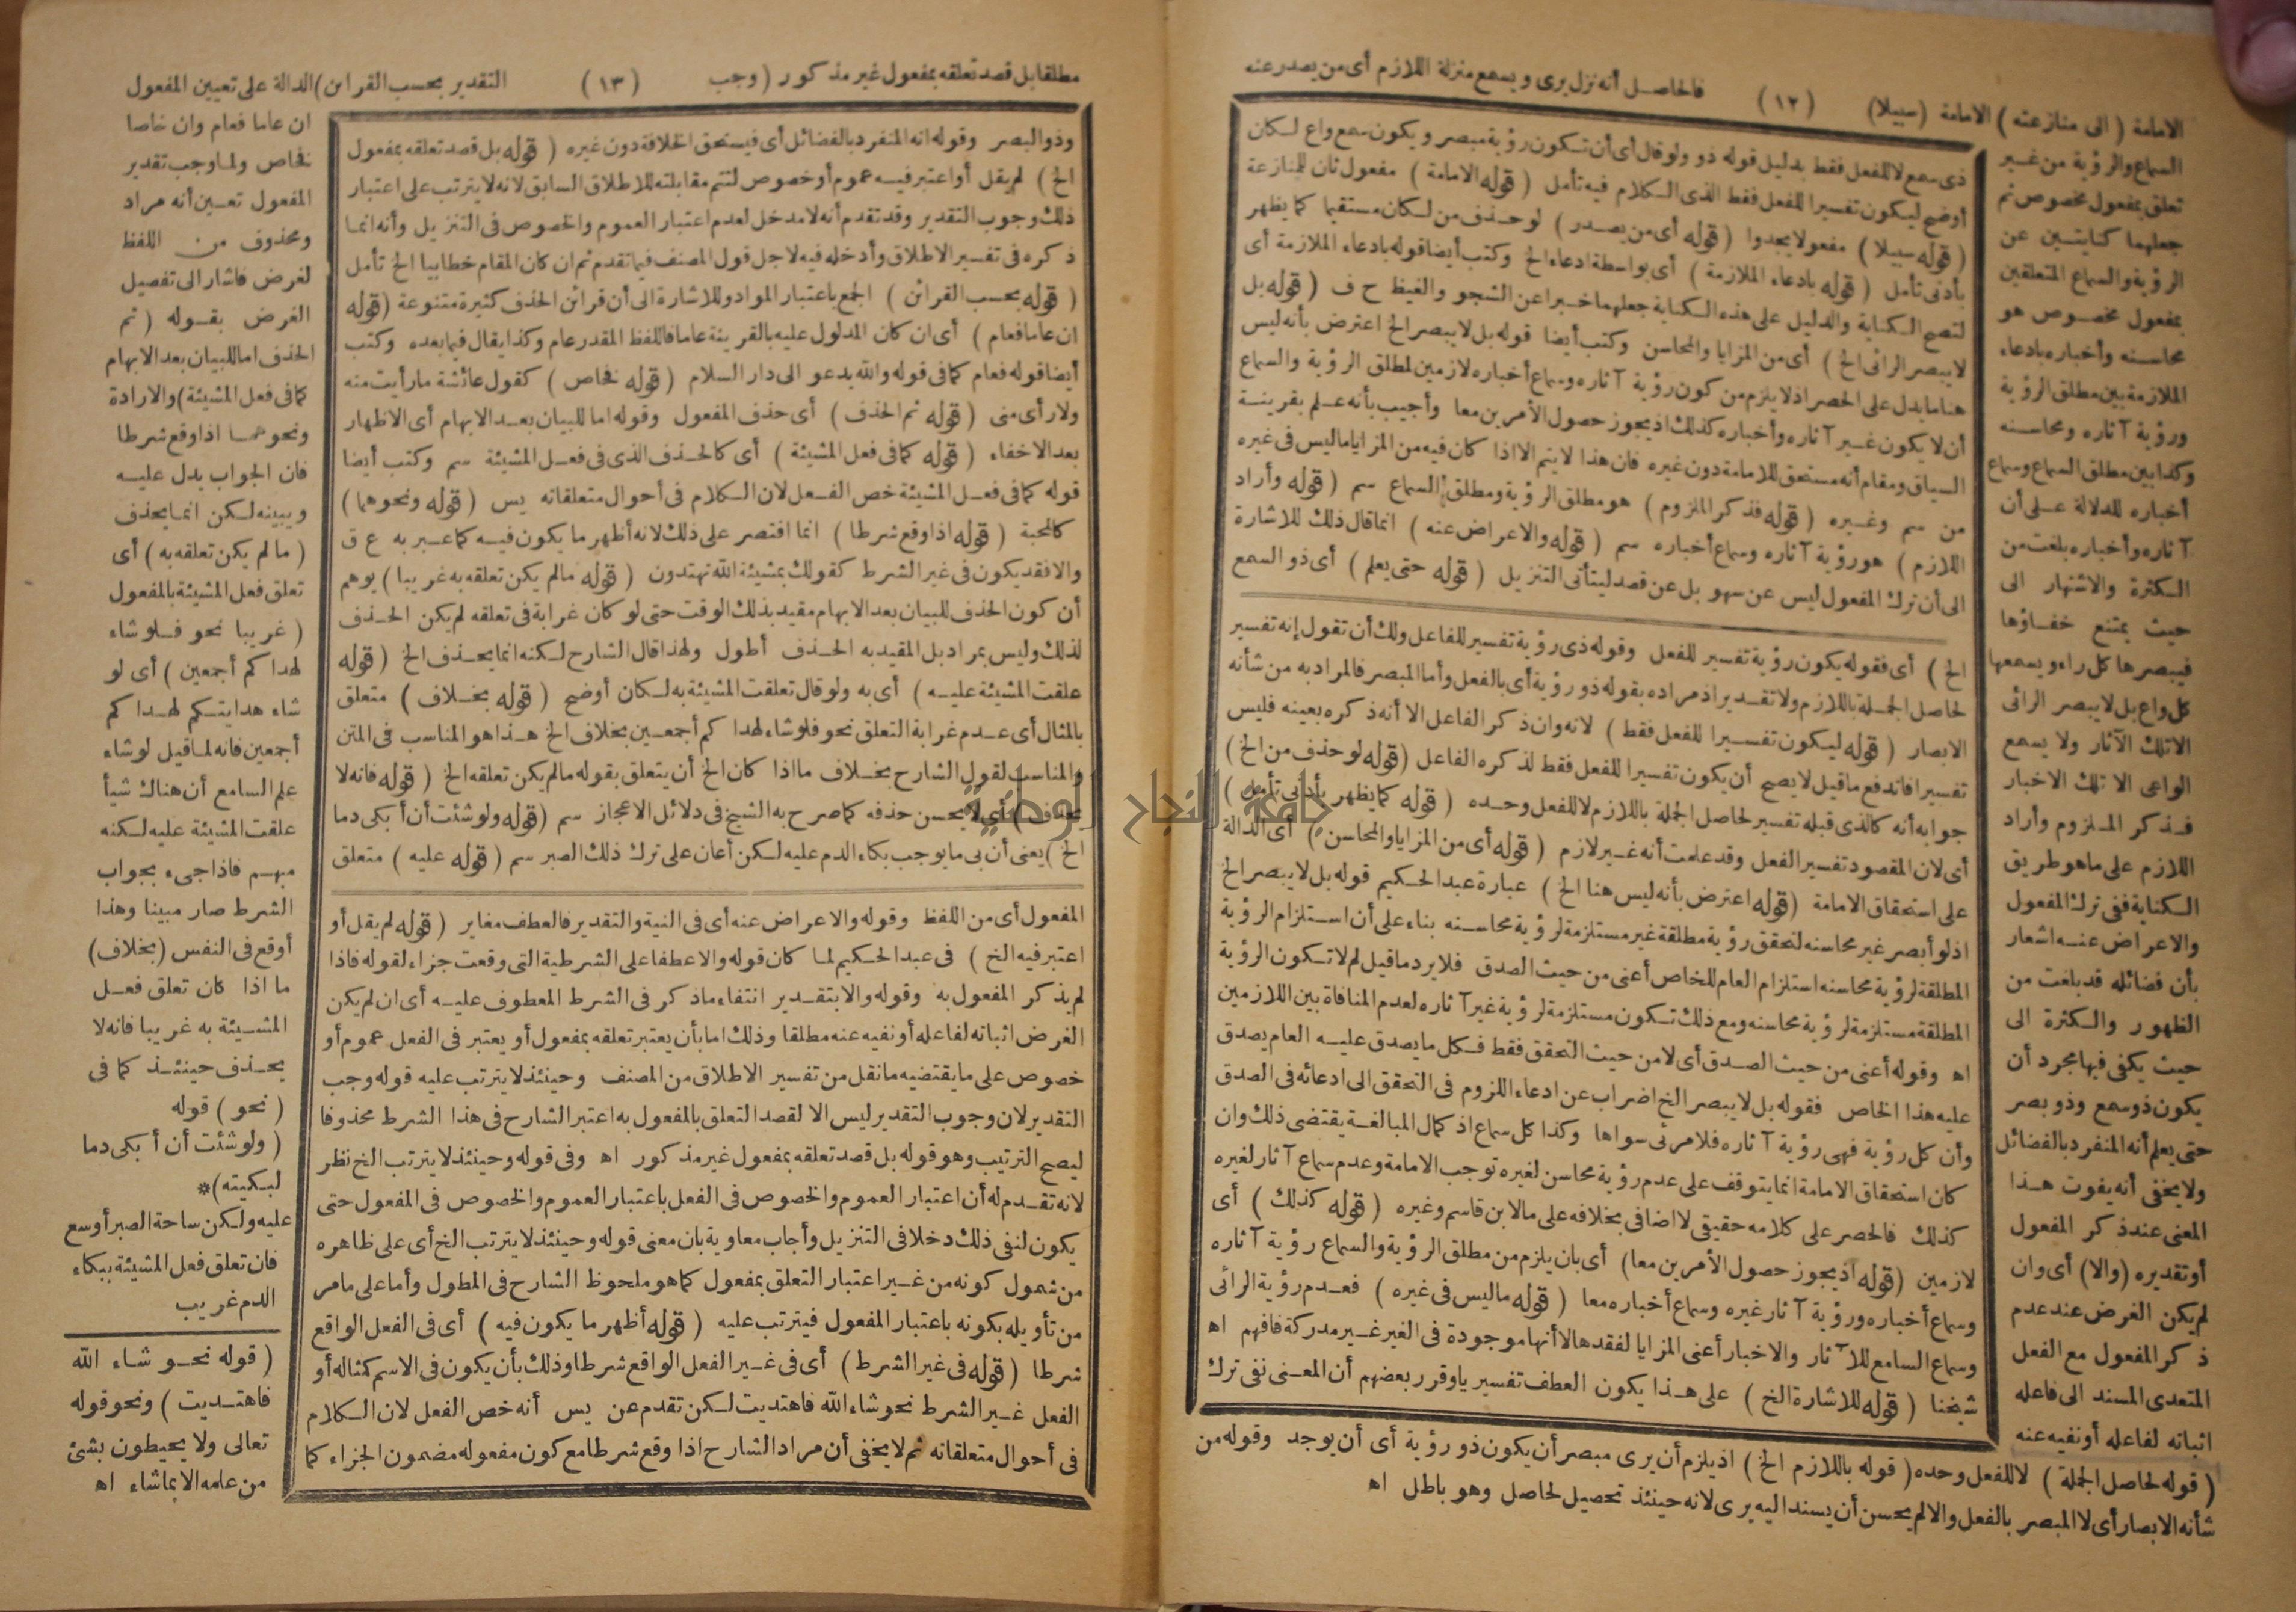 الامامة (الى منازعته) الامامة (سبيلا) (١٢) فالحاصل أنه نزل يرى ويسمع منزلة اللازم أى من يصدر عنه
السماع والرؤية من غير
تعلق بمفعول مخصوص ثم
جعلهما كنايتين عن
الرؤية والسماع المتعلقين
بمفعول مخصوص هو
محاسنه وأخباره بادعاء
الملازمة بين مطلق الرؤية
ورؤية آثاره ومحاسنه
وكذا بين مطلق السماع وسماع
أخباره للدلالة على أن
آثاره وأخباره بلغت من
الكثرة والاشتهار الى
حيث يمتنع خفاؤها
فيبصرها كل راء ويسمعها
كل واع بل لا يبصر الرائى
الا تلك الآثار ولا يسمع
الواعى الا تلك الاخبار
فذكر الملزوم وأراد
اللازم على ما هو طريق
الكناية ففى ترك المفعول
والاعراض عنه اشعار
بأن فضائله قد بلغت من
الظهور والكثرة الى
حيث يكفى فيها مجرد أن
يكون ذو سمع وذو بصر
حتى يعلم أنه المنفرد بالفضائل
ولا يخفى أنه يفوت هذا
المعنى عند ذكر المفعول
أو تقديره (والا) أى وان
لم يكن الغرض عند عدم
ذكر المفعول مع الفعل
المتعدى المسند الى فاعله
اثباته لفاعله أو نفيه عنه
ذى سمع لا للفعل فقط بدليل قوله ذو ولو قال أى أن تكون رؤية مبصر ويكون سمع واع لكان
أوضح ليكون تفسيرا للفعل فقط الذى الكلام فيه تأمل (قوله الامامة) مفعول ثان للمنازعة
(قوله سبيلا) مفعول يجدوا (قوله أى من يصدر) لو حذف من لكان مستقيما كما يظهر
بأدنى تأمل (قوله بادعاء الملازمة) أى بواسطة ادعاء الخ وكتب أيضا قوله بادعاء الملازمة أى
لتصح الكناية والدليل على هذه الكناية جعلهما خبرا عن الشجو والغيظ ح ف (قوله بل
لا يبصر الرائى الخ) أى من المزايا والمحاسن وكتب أيضا قوله بل لا يبصر الخ اعترض بأنه ليس
هنا ما يدل على الحصر اذ لا يلزم من كون رؤية آثاره وسماع أخباره لازمين لمطلق الرؤية والسماع
أن لا يكون غير آثاره وأخباره كذلك اذ يجوز حصول الأمرين معا وأجيب بأنه علم بقرينة
السياق ومقام أنه مستحق للامامة دون غيره فان هذا لا يتم الا اذا كان فيه من المزايا ما ليس فى غيره
من سم وغيره (قوله فذكر الملزوم) هو مطلق الرؤية ومطلق السماع سم (قوله وأراد
اللازم) هو رؤية آثاره وسماع أخباره سم (قوله والاعراض عنه) انما قال ذلك للاشارة
الى أن ترك المفعول ليس عن سهو بل عن قصد ليتأتى التنزيل (قوله حتى يعلم) أى ذو السمع
الخ) أى فقوله يكون رؤية تفسير للفعل وقوله ذى رؤية تفسير للفاعل ولك أن تقول إنه تفسير
لحاصل الجملة باللازم ولا تقدير اذ مراده بقوله ذو رؤية أى بالفعل وأما المبصر فالمراد به من شأنه
الابصار (قوله ليكون تفسيرا للفعل فقط) لانه وان ذكر الفاعل الا أنه ذكره بعينه فليس
تفسيرا فاندفع ما قيل لا يصح أن يكون تفسيرا للفعل فقط لذكره الفاعل (قوله لو حذف من الخ)
جوابه أنه كالذى قبله تفسير لحاصل الجملة باللازم لا للفعل وحده (قوله كما يظهر بأدنى تأمل)
أى لان المقصود تفسير الفعل وقد علمت أنه غير لازم (قوله أى من المزايا والمحاسن) أى الدالة
على استحقاق الامامة (قوله اعترض بأنه ليس هنا الخ) عبارة عبد الحكيم قوله بل لا يبصر الخ
اذ لو أبصر غير محاسنه لتحقق رؤية مطلقة غير مستلزمة لرؤية محاسنه بناء على أن استلزام الرؤية
المطلقة لرؤية محاسنه استلزام العام للخاص أعنى من حيث الصدق فلا يرد ما قيل لم لا تكون الرؤية
المطلقة مستلزمة لرؤية محاسنه ومع ذلك تكون مستلزمة لرؤية غير آثاره لعدم المنافاة بين اللازمين
اه وقوله أعنى من حيث الصدق أى لا من حيث التحقق فقط فكل ما يصدق عليه العام يصدق
عليه هذا الخاص فقوله بل لا يبصر الخ اضراب عن ادعاء اللزوم فى التحقق الى ادعائه فى الصدق
وأن كل رؤية فهى رؤية آثاره فلا مرئى سواها وكذا كل سماع اذ كمال المبالغة يقتضى ذلك وان
كان استحقاق الامامة انما يتوقف على عدم رؤية محاسن لغيره توجب الامامة وعدم سماع آثار لغيره
كذلك فالحصر على كلامه حقيقى لا اضافى بخلافه على ما لابن قاسم وغيره (قوله كذلك) أى
لازمين (قوله اذ يجوز حصول الأمرين معا) أى بان يلزم من مطلق الرؤية والسماع رؤية آثاره
وسماع أخباره ورؤية آثار غيره وسماع أخباره معا (قوله ما ليس فى غيره) فعدم رؤية الرائى
وسماع السامع للآثار والاخبار أعنى المزايا لفقدها لا أنها موجودة فى الغير غير مدركة فافهم اه
شيخنا (قوله للاشارة الخ) على هذا يكون العطف تفسيريا وقرر بعضهم أن المعنى نفى ترك
(قوله لحاصل الجملة) لا للفعل وحده (قوله باللازم الخ) اذ يلزم أن يرى مبصر أن يكون ذو رؤية أى أن يوجد وقوله من
شأنه الابصار أى لا المبصر بالفعل والا لم يحسن أن يسند اليه يرى لانه حينئذ تحصيل لحاصل وهو باطل اه
مطلقا بل قصد تعلقه بمفعول غير مذكور (وجب (١٣) التقدير بحسب القرائن) الدالة على تعيين المفعول
ان عاما فعام وان خاصا
فخاص ولما وجب تقدير
المفعول تعين أنه مراد
ومحذوف من اللفظ
لغرض فأشار الى تفصيل
الغرض بقوله (ثم
الحذف اما للبيان بعد الابهام
كما فى فعل المشيئة) والارادة
ونحوهما اذا وقع شرطا
فان الجواب يدل عليه
ويبينه لكن انما يحذف
(ما لم يكن تعلقه به) أى
تعلق فعل المشيئة بالمفعول
(غريبا نحو فلو شاء
لهداكم أجمعين) أى لو
شاء هدايتكم لهداكم
أجمعين فانه لما قيل لو شاء
علم السامع أن هناك شيأ
علقت المشيئة عليه لكنه
مبهم فاذا جىء بجواب
الشرط صار مبينا وهذا
أوقع فى النفس (بخلاف)
ما اذا كان تعلق فعل
المشيئة به غريبا فانه لا
يحذف حينئذ كما فى
(نحو) قوله
(ولو شئت أن أبكى دما
لبكيته)*
عليه ولكن ساحة الصبر أوسع
فان تعلق فعل المشيئة ببكاء
الدم غريب
(قوله نحو شاء الله
فاهتديت) ونحو قوله
تعالى ولا يحيطون بشئ
من علمه الا بما شاء اه
وذو البصر وقوله انه المنفرد بالفضائل أى فيستحق الخلافة دون غيره (قوله بل قصد تعلقه بمفعول
الخ) لم يقل أو اعتبر فيه عموم أو خصوص لتتم مقابلته للاطلاق السابق لانه لا يترتب على اعتبار
ذلك وجوب التقدير وقد تقدم أنه لا مدخل لعدم اعتبار العموم والخصوص فى التنزيل وأنه انما
ذكره فى تفسير الاطلاق وأدخله فيه لاجل قول المصنف فيما تقدم ثم ان كان المقام خطابيا الخ تأمل
(قوله بحسب القرائن) الجمع باعتبار المواد وللاشارة الى أن قرائن الحذف كثيرة متنوعة (قوله
ان عاما فعام) أى ان كان المدلول عليه بالقرينة عاما فاللفظ المقدر عام وكذا يقال فيما بعده وكتب
أيضا قوله فعام كما فى قوله والله يدعو الى دار السلام (قوله فخاص) كقول عائشة ما رأيت منه
ولا رأى منى (قوله ثم الحذف) أى حذف المفعول وقوله اما للبيان بعد الابهام أى الاظهار
بعد الاخفاء (قوله كما فى فعل المشيئة) أى كالحذف الذى فى فعل المشيئة سم وكتب أيضا
قوله كما فى فعل المشيئة خص الفعل لان الكلام فى أحوال متعلقاته يس (قوله ونحوهما)
كالمحبة (قوله اذا وقع شرطا) انما اقتصر على ذلك لانه أظهر ما يكون فيه كما عبر به ع ق
والا فقد يكون فى غير الشرط كقولك بمشيئة الله تهتدون (قوله ما لم يكن تعلقه به غريبا) يوهم
أن كون الحذف للبيان بعد الابهام مقيد بذلك الوقت حتى لو كان غرابة فى تعلقه لم يكن الحذف
لذلك وليس بمراد بل المقيد به الحذف أطول ولهذا قال الشارح لكنه انما يحذف الخ (قوله
علقت المشيئة عليه) أى به ولو قال تعلقت المشيئة به لكان أوضح (قوله بخلاف) متعلق
بالمثال أى عدم غرابة التعلق نحو فلو شاء لهداكم أجمعين بخلاف الخ هذا هو المناسب فى المتن
والمناسب لقول الشارح بخلاف ما اذا كان الخ أن يتعلق بقوله ما لم يكن تعلقه الخ (قوله فانه لا
يحذف) أى لا يحسن حذفه كما صرح به الشيخ فى دلائل الاعجاز سم (قوله ولو شئت أن أبكى دما
الخ) يعنى أن بى ما يوجب بكاء الدم عليه لكن أعان على ترك ذلك الصبر سم (قوله عليه) متعلق
المفعول أى من اللفظ وقوله والاعراض عنه أى فى النية والتقدير فالعطف مغاير (قوله لم يقل أو
اعتبر فيه الخ) فى عبد الحكيم لما كان قوله والا عطفا على الشرطية التى وقعت جزاء لقوله فاذا
لم يذكر المفعول به وقوله والا بتقدير انتفاء ما ذكر فى الشرط المعطوف عليه أى ان لم يكن
الغرض اثباته لفاعله أو نفيه عنه مطلقا وذلك اما بأن يعتبر تعلقه بمفعول أو يعتبر فى الفعل عموم أو
خصوص على ما يقتضيه ما نقل من تفسير الاطلاق من المصنف وحينئذ لا يترتب عليه قوله وجب
التقدير لان وجوب التقدير ليس الا لقصد التعلق بالمفعول به اعتبر الشارح فى هذا الشرط محذوفا
ليصح الترتيب وهو قوله بل قصد تعلقه بمفعول غير مذكور اه وفى قوله وحينئذ لا يترتب الخ نظر
لانه تقدم له أن اعتبار العموم والخصوص فى الفعل باعتبار العموم والخصوص فى المفعول حتى
يكون لنفى ذلك دخلا فى التنزيل وأجاب معاوية بان معنى قوله وحينئذ لا يترتب الخ أى على ظاهره
من شمول كونه من غير اعتبار التعلق بمفعول كما هو ملحوظ الشارح فى المطول وأما على ما مر
من تأويله بكونه باعتبار المفعول فيترتب عليه (قوله أظهر ما يكون فيه) أى فى الفعل الواقع
شرطا (قوله فى غير الشرط) أى فى غير الفعل الواقع شرطا وذلك بأن يكون فى الاسم كمثاله أو
الفعل غير الشرط نحو شاء الله فاهتديت لكن تقدم عن يس أنه خص الفعل لان الكلام
فى أحوال متعلقاته ثم لا يخفى أن مراد الشارح اذا وقع شرطا مع كون مفعوله مضمون الجزاء كما
جامعة النجاح الوطنية